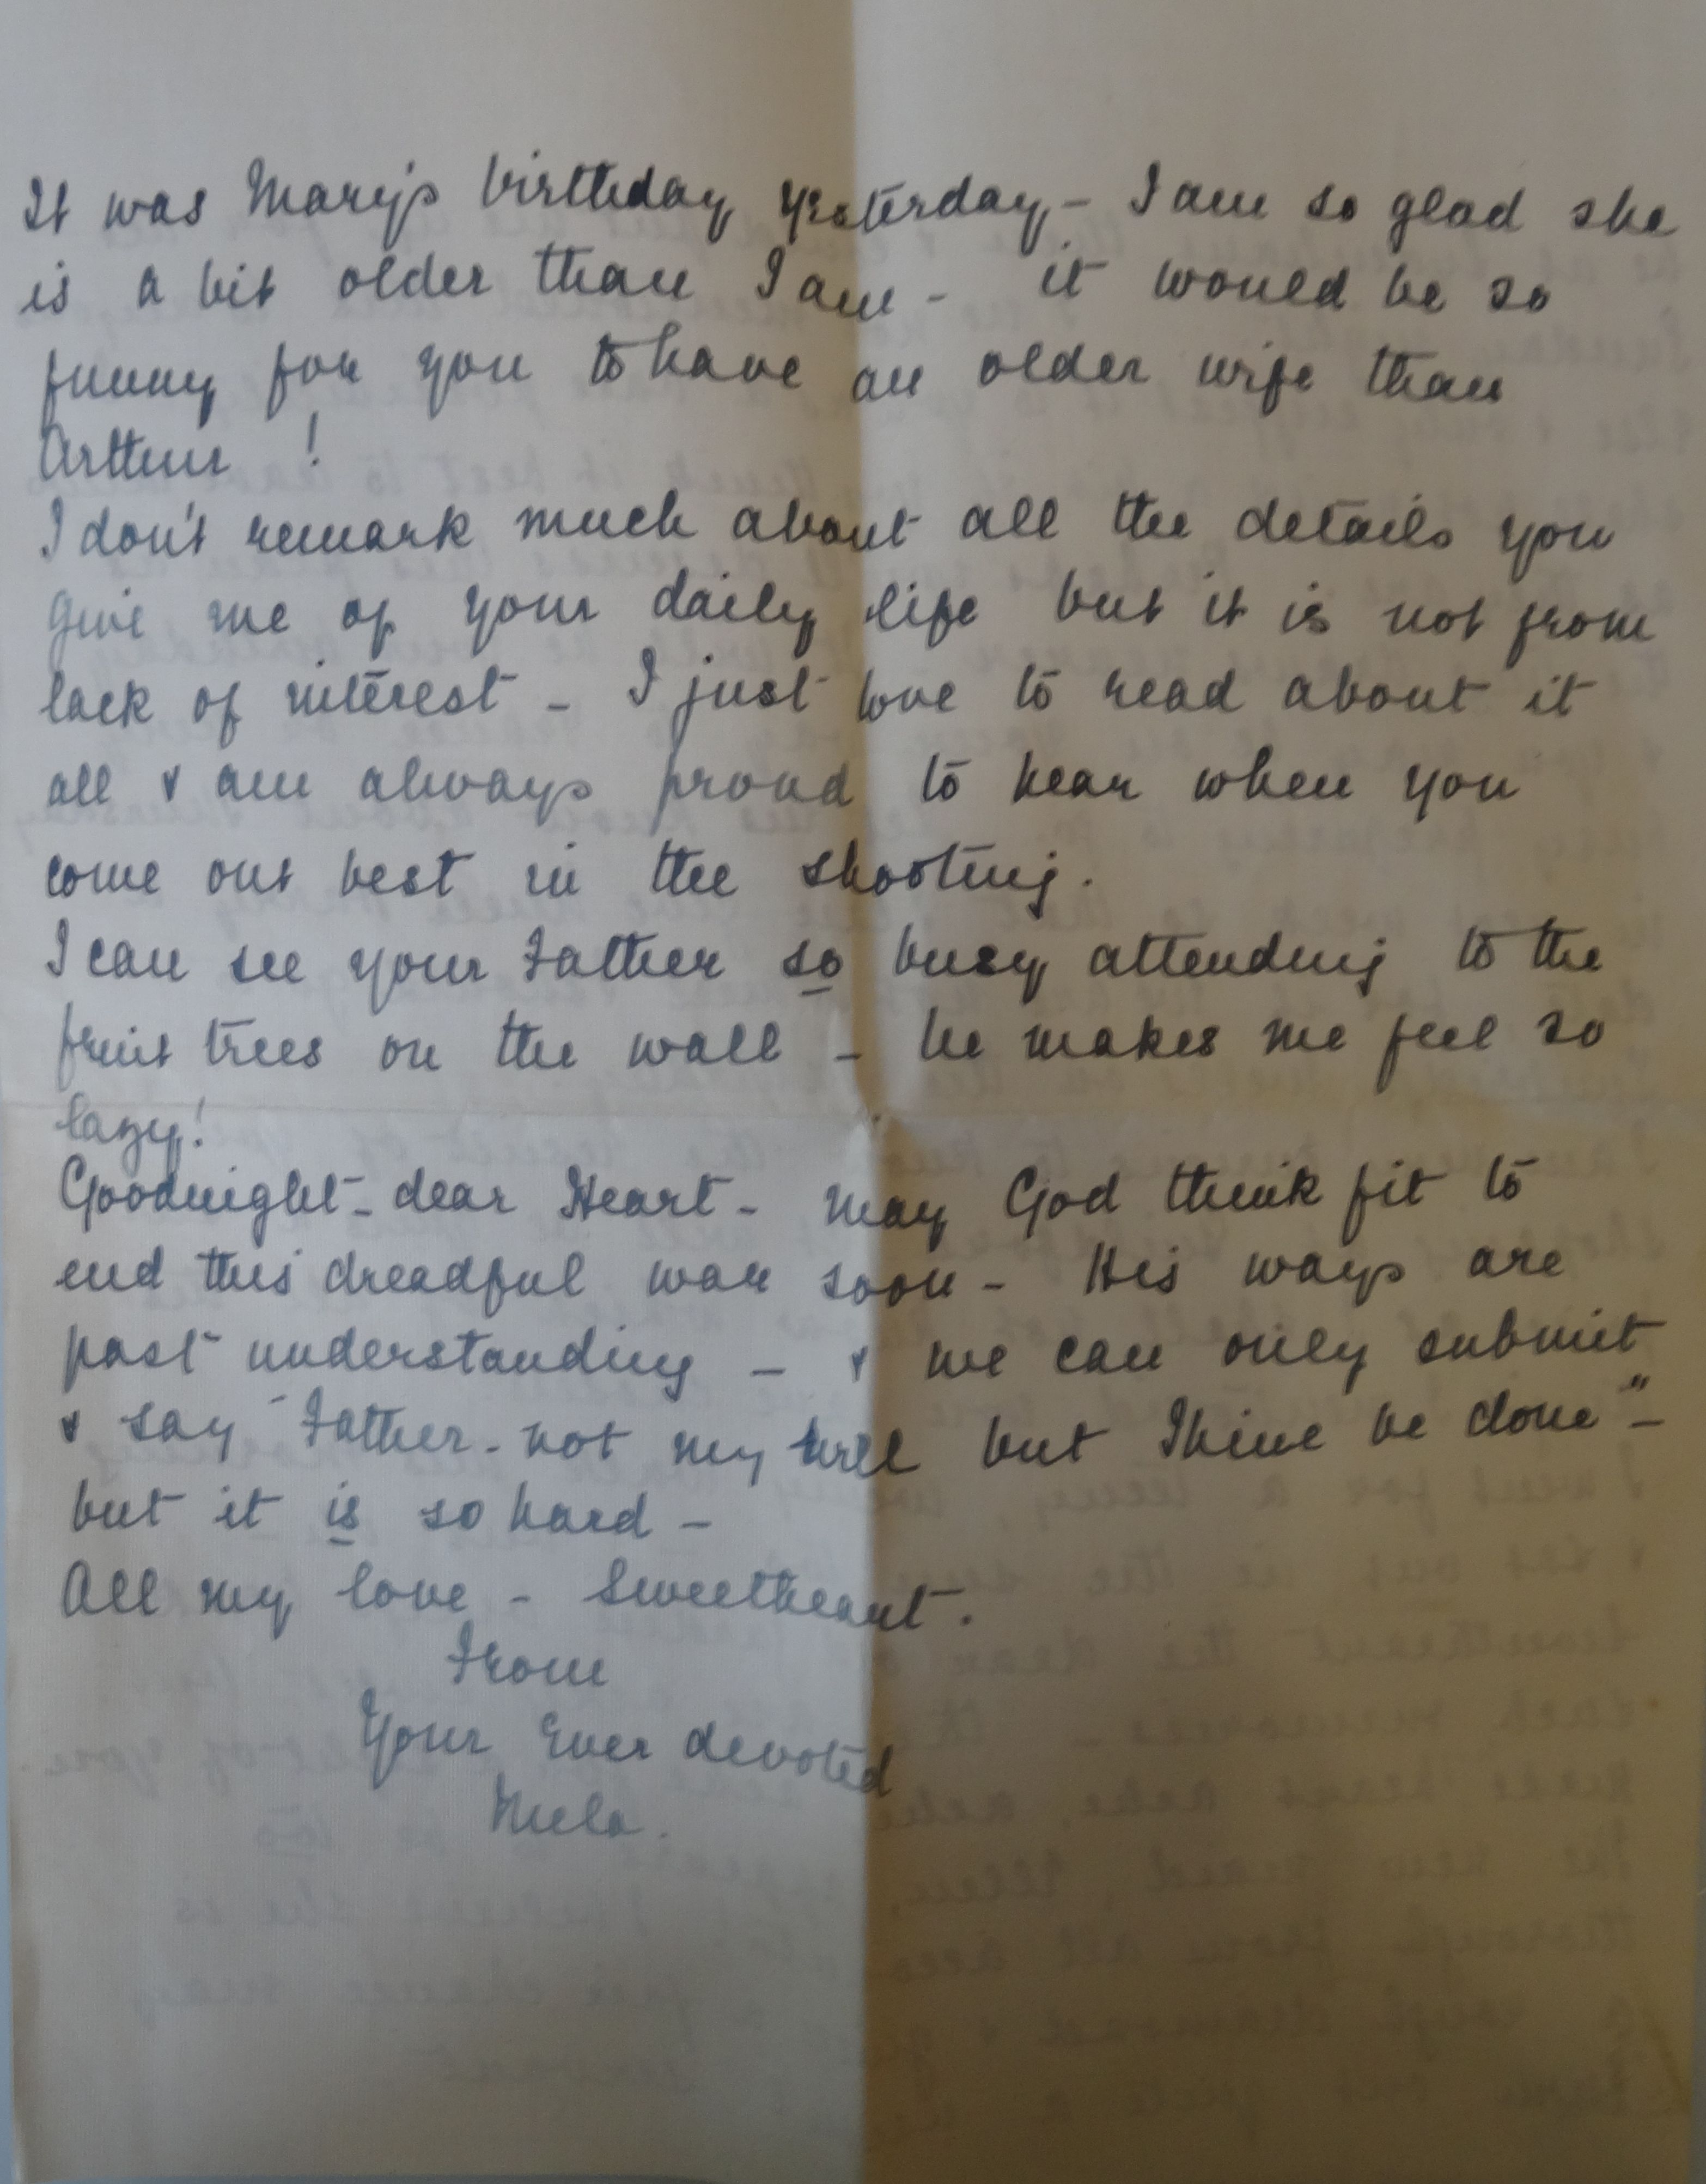 It was Mary's birthday yesterday - I am so glad she
is a bit older than I am - it would be so
funny for you to have an older wife than
Arthur !
I don't remark much about all the details you
give me of your daily life but it is not from
lack of interest - I just love to read about it
all & am always proud to hear when you
come out best in the shooting.
I can see your Father so busy attending to the
fruit trees on the wall - he makes me feel so
lazy!
Goodnight - dear Heart - may God think fit to
end this dreadful war soon - His ways are
past understanding - & we can only submit
& say "Father - not my will but Thine be done" -
but it is so hard -
All my love - Sweetheart.
From
Your Ever devoted